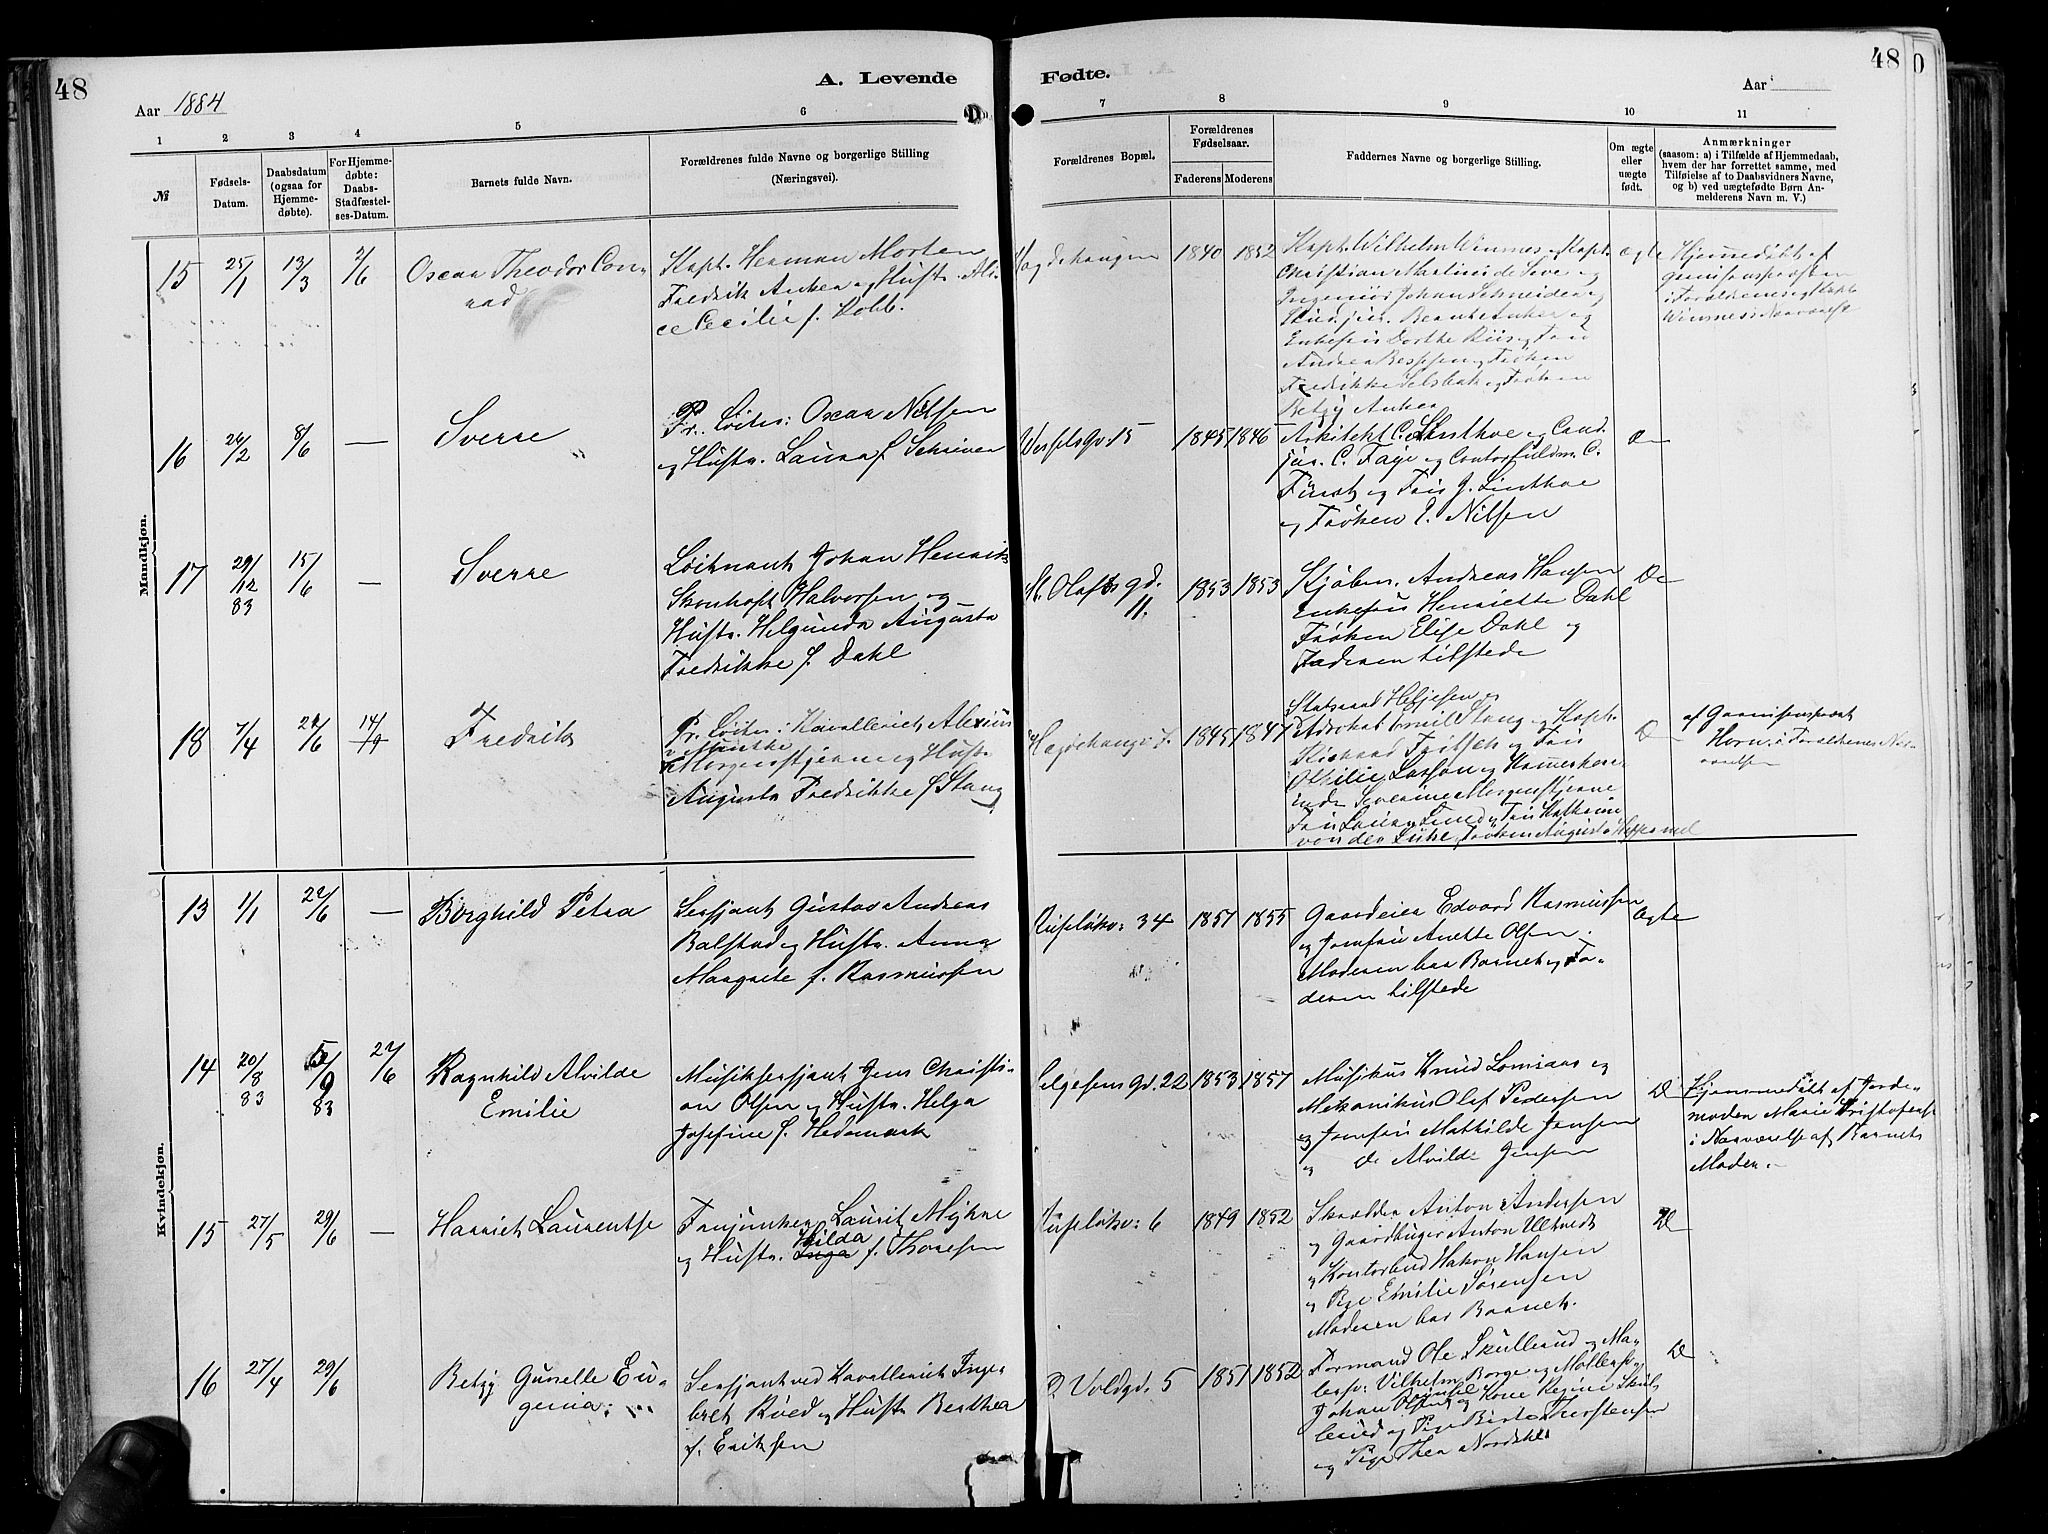 48
A. Levende
Aar 1884
Fødte.
Aar
48
1 2 3 4 5 6 7 8 9 10 11
№
Fødsels-
Datum.
Daabsdatum
(ogsaa for
Hjemme-
døbte).
For Hjemme-
døbte:
Daabs-
Stadfæstel-
ses-Datum.
Barnets fulde Navn.
Forældrenes fulde Navne og borgerlige Stilling
(Næringsvei).
Forældrenes Bopæl.
Forældrenes
Fødselsaar.
Faderens Moderens
Faddernes Navne og borgerlige Stilling.
Om ægte
eller
uægte
født.
Anmærkninger
(saasom: a) i Tilfælde af Hjemmedaab,
hvem der har forrettet samme, med
Tilføielse af to Daabsvidners Navne,
og b) ved uægtefødte Børn An-
melderens Navn m. V.)
Mandkjøn.
15 25/1 13/3 2/6
Oscar Theodor Con-
rad
Kapt. Herman Morten
Fredrik Anker og Hustr. Ali-
ce Cecilie f. Kobb.
1840 1852
Kapt. Wilhelm Winsnes, Kapt.
Christian Martinus de Seve og
Ingeniør Johan Schneider og
Stud. jur. Bernt Anker og
Enkefru Dorthe Riis og Fru
Andrea og Frøken
Fredrikke Selsbak og Frøken
Betzy Anker
ægte
Hjemmedøbt af
garnisonspræsten
i Forældrenes og Kapt.
Winsnes's Nærværelse
16 26/2 8/6 —
Sverre
Pr. Løitn: Oscar Nilsen
og Hustr. Laura f. Schriver
Wesselsgd: 15
1845 1846
Arkitekt C. Linthoe og Cand.
jur. C. Faye og Contorfuldm. C.
Fürst og Fru J. Linthoe
og Frøken E. Nilsen
Do
17 29/12 83 15/6 —
Sverre
Løitnant Johan Henrik
Skonhoft Halvorsen og
Hustr. Helgunda Augusta
Fredrikke f. Dahl
St. Olafs gd.
11.
1853 1853
Kjøbm. Andreas Hansen
Enkefru Henriette Dahl
Frøken Elise Dahl og
Faderen tilstede
Do
18 7/4 24/6 14/9
Fredrik
Pr. Løitn: i Kavalleriet Alexius
v. Munthe
Morgenstjerne og Hustr.
Augusta Fredrikke f. Stang
Hægdehaugv. 7.
1845 1847
Statsraad Heljesen og
Advokat Emil Stang og Kapt.
Richard Fritsch og Fru
Othilie Lasson og Kamerherre-
inde Severine Morgenstjerne
Fru Laura Lund og Fru Kathrine
von der Lühe, Frøken Augusta
D
af Garnisonspræst
Horn, i Forældrenes Nær-
værelsen
Kvindekjøn.
13 1/1 22/6 —
Borghild Petra
Sersjant Gustav Andreas
Balstad og Hustr. Anna
Margrete f. Rasmussen
Rusløkv: 34
1851 1855
Gaardeier Edvard Rasmussen
og Jomfru Anette Olsen.
Moderen bar Barnet og Fa-
deren tilstede
Ægte
14 20/8 83 5/9 83 22/6
Ragnhild Alvilde
Emilie
Musiksersjant Jens Christi-
an Olsen og Hustr. Helga
Josefine f. Hedemark
Helgesens Gd. 22
1853 1857
Musikus Knud Lomsaas og
Mekanikus Olaf Pedersen
og Jomfru Mathilde Jensen
og Do Alvilde Jensen
D
Hjemmedøbt af Jorde-
moder Marie Kristofersen
i Nærværelse af Barnets
Moder.
15 27/5 29/6 —
Harriet Laurentse
Fanjunker Laurit Myhre
Hilda
og Hustr. Inga f. Thoresen
Rusløkv: 6
1849 1852
Skrædder Anton Andersen
og Gaardbruger Anton Ulkveds
og Kontorbud Hakon Hansen
og Pige Emilie Sørensen
Moderen bar Barnet.
D
16 27/4 29/6
Betzy Gunelle Eu-
genia
Sersjant ved Kavalleriet Inge-
bret Røed og Hustr. Berthea
f. Eriksen
Ø. Voldgd. 5
1851 1852
Formand Ole Skullerud og Ma-
lersv: Vilhelm Borge og Møllersv.
Johan Olsen og Kone Regine Skul-
lerud og Pige Berte Thorstensen
og Pige Thea Nordskle
D